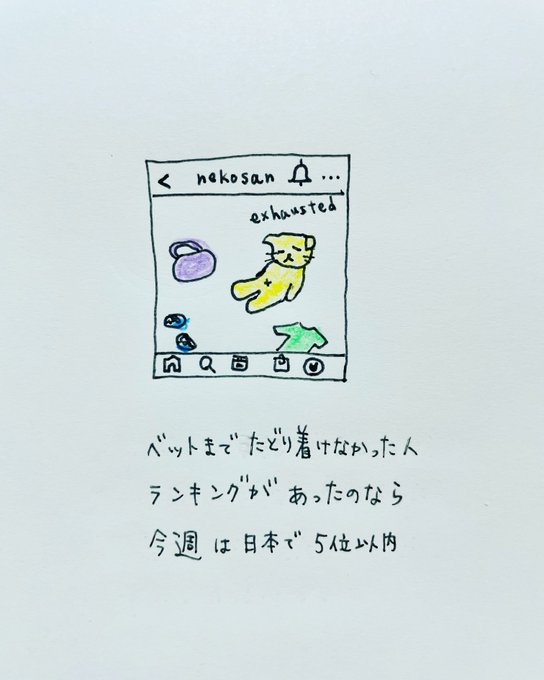 nekosan
exhausted
ベットまでたどり着けなかった人
ランキングがあったのなら
今週は日本で5位以内